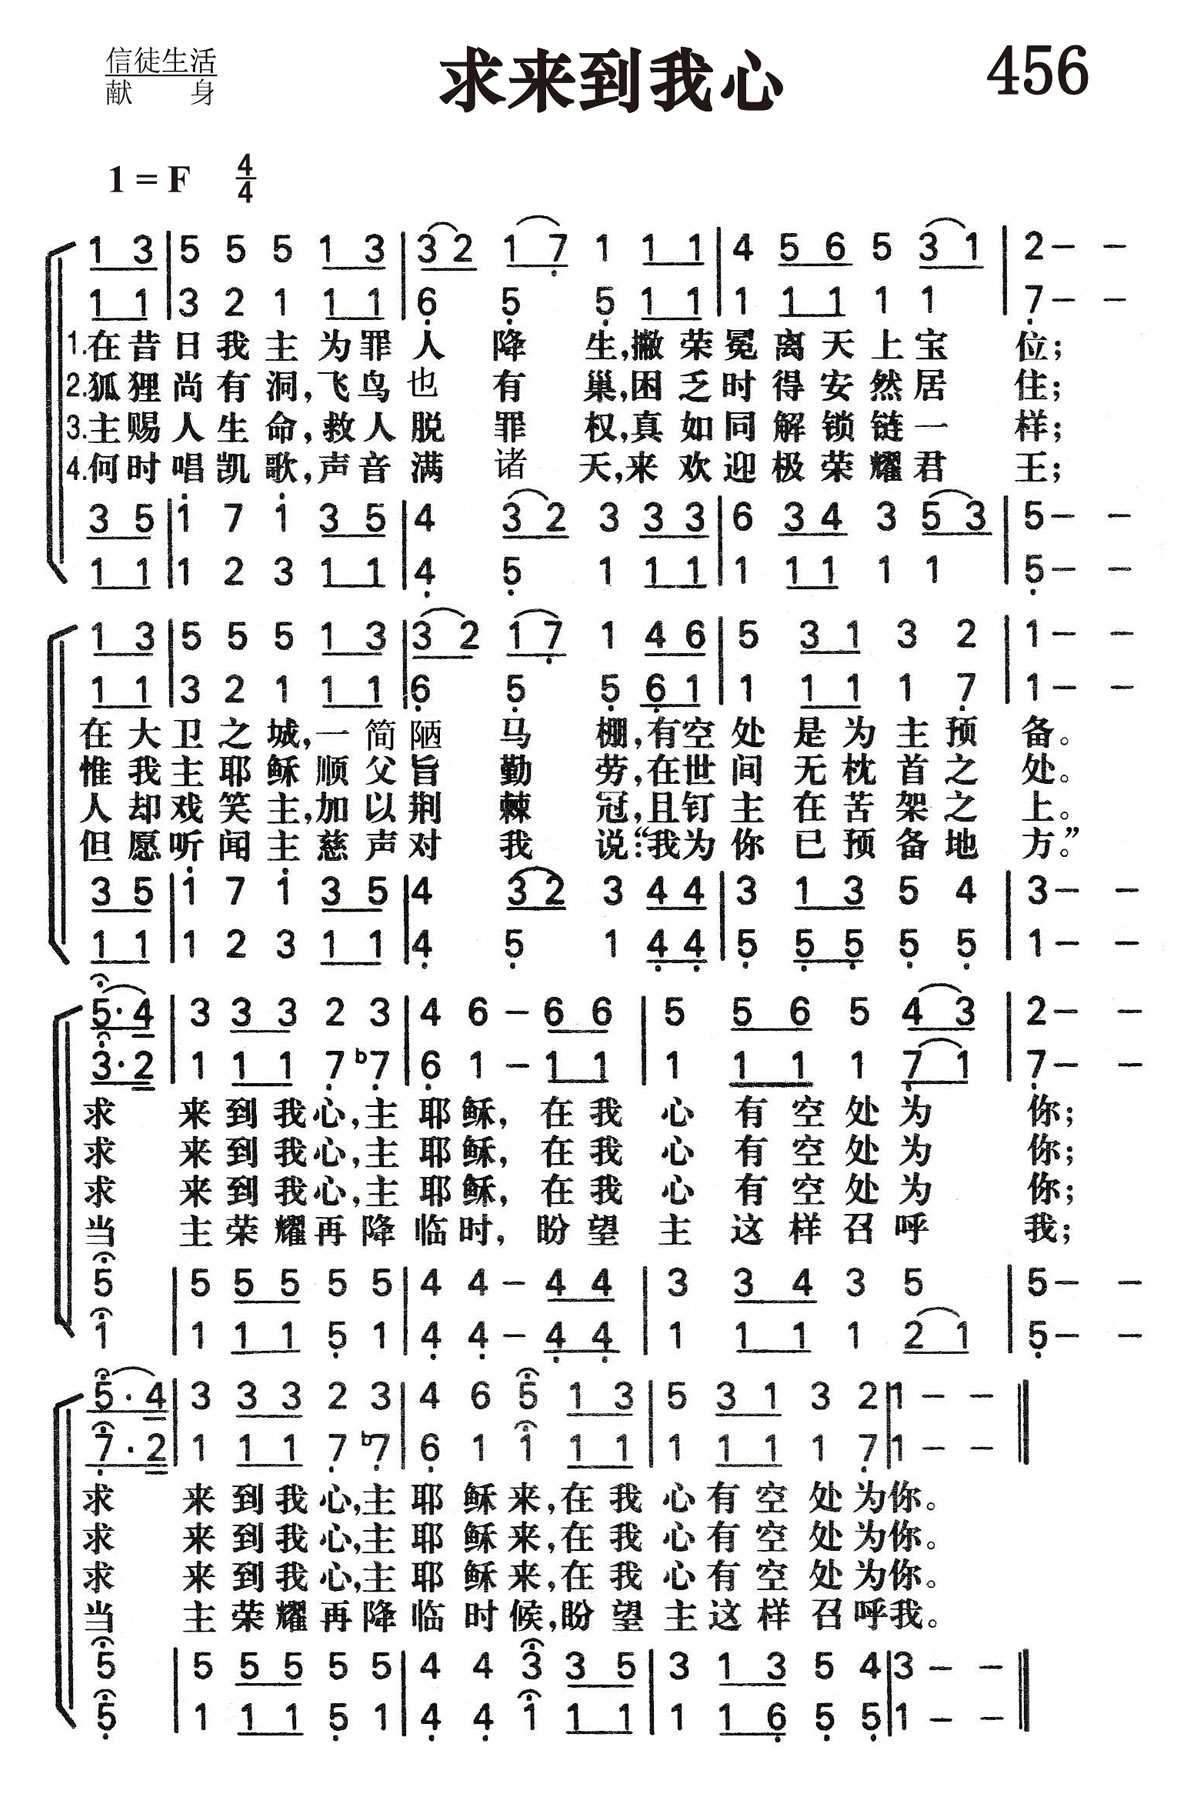 信徒生活
献 身
求来到我心
456
1 = F 4/4
1 3 | 5 5 5 1 3 | 3 2 1 7 1 1 1 | 4 5 6 5 3 1 | 2 – –
1 1 | 3 2 1 1 1 | 6 5 5 1 1 | 1 1 1 1 1 | 7 – –
1.在昔日我主为罪人降生,撇荣冕离天上宝位;
2.狐狸尚有洞,飞鸟也有巢,困乏时得安然居住;
3.主赐人生命,救人脱罪权,真如同解锁链一样;
4.何时唱凯歌,声音满诸天,来欢迎极荣耀君王;
3 5 | 1 7 1 3 5 | 4 3 2 3 3 3 | 6 3 4 3 5 3 | 5 – –
1 1 | 1 2 3 1 1 | 4 5 1 1 1 | 1 1 1 1 1 | 5 – –
1 3 | 5 5 5 1 3 | 3 2 1 7 1 4 6 | 5 3 1 3 2 | 1 – –
1 1 | 3 2 1 1 1 | 6 5 5 6 1 | 1 1 1 1 7 | 1 – –
在大卫之城,一简陋马棚,有空处是为主预备。
惟我主耶稣顺父旨勤劳,在世间无枕首之处。
人却戏笑主,加以荆棘冠,且钉主在苦架之上。
但愿听闻主慈声对我说:“我为你已预备地方。”
3 5 | 1 7 1 3 5 | 4 3 2 3 4 4 | 3 1 3 5 4 | 3 – –
1 1 | 1 2 3 1 1 | 4 5 1 4 4 | 5 5 5 5 5 | 1 – –
5·4 | 3 3 3 2 3 | 4 6 – 6 6 | 5 5 6 5 4 3 | 2 – –
3·2 | 1 1 1 7 ♭7 | 6 1 – 1 1 | 1 1 1 1 7 1 | 7 – –
求来到我心,主耶稣,在我心有空处为你;
求来到我心,主耶稣,在我心有空处为你;
求来到我心,主耶稣,在我心有空处为你;
当主荣耀再降临时,盼望主这样召呼我;
5 | 5 5 5 5 5 | 4 4 – 4 4 | 3 3 4 3 5 | 5 – –
1 | 1 1 1 5 1 | 4 4 – 4 4 | 1 1 1 1 2 1 | 5 – –
5·4 | 3 3 3 2 3 | 4 6 5 1 3 | 5 3 1 3 2 | 1 – –
7·2 | 1 1 1 7 ♭7 | 6 1 1 1 1 | 1 1 1 1 7 | 1 – –
求来到我心,主耶稣来,在我心有空处为你。
求来到我心,主耶稣来,在我心有空处为你。
求来到我心,主耶稣来,在我心有空处为你。
当主荣耀再降临时候,盼望主这样召呼我。
5 | 5 5 5 5 5 | 4 4 3 3 5 | 3 1 3 5 4 | 3 – –
5 | 1 1 1 5 1 | 4 4 1 1 1 | 1 1 6 5 5 | 1 – –